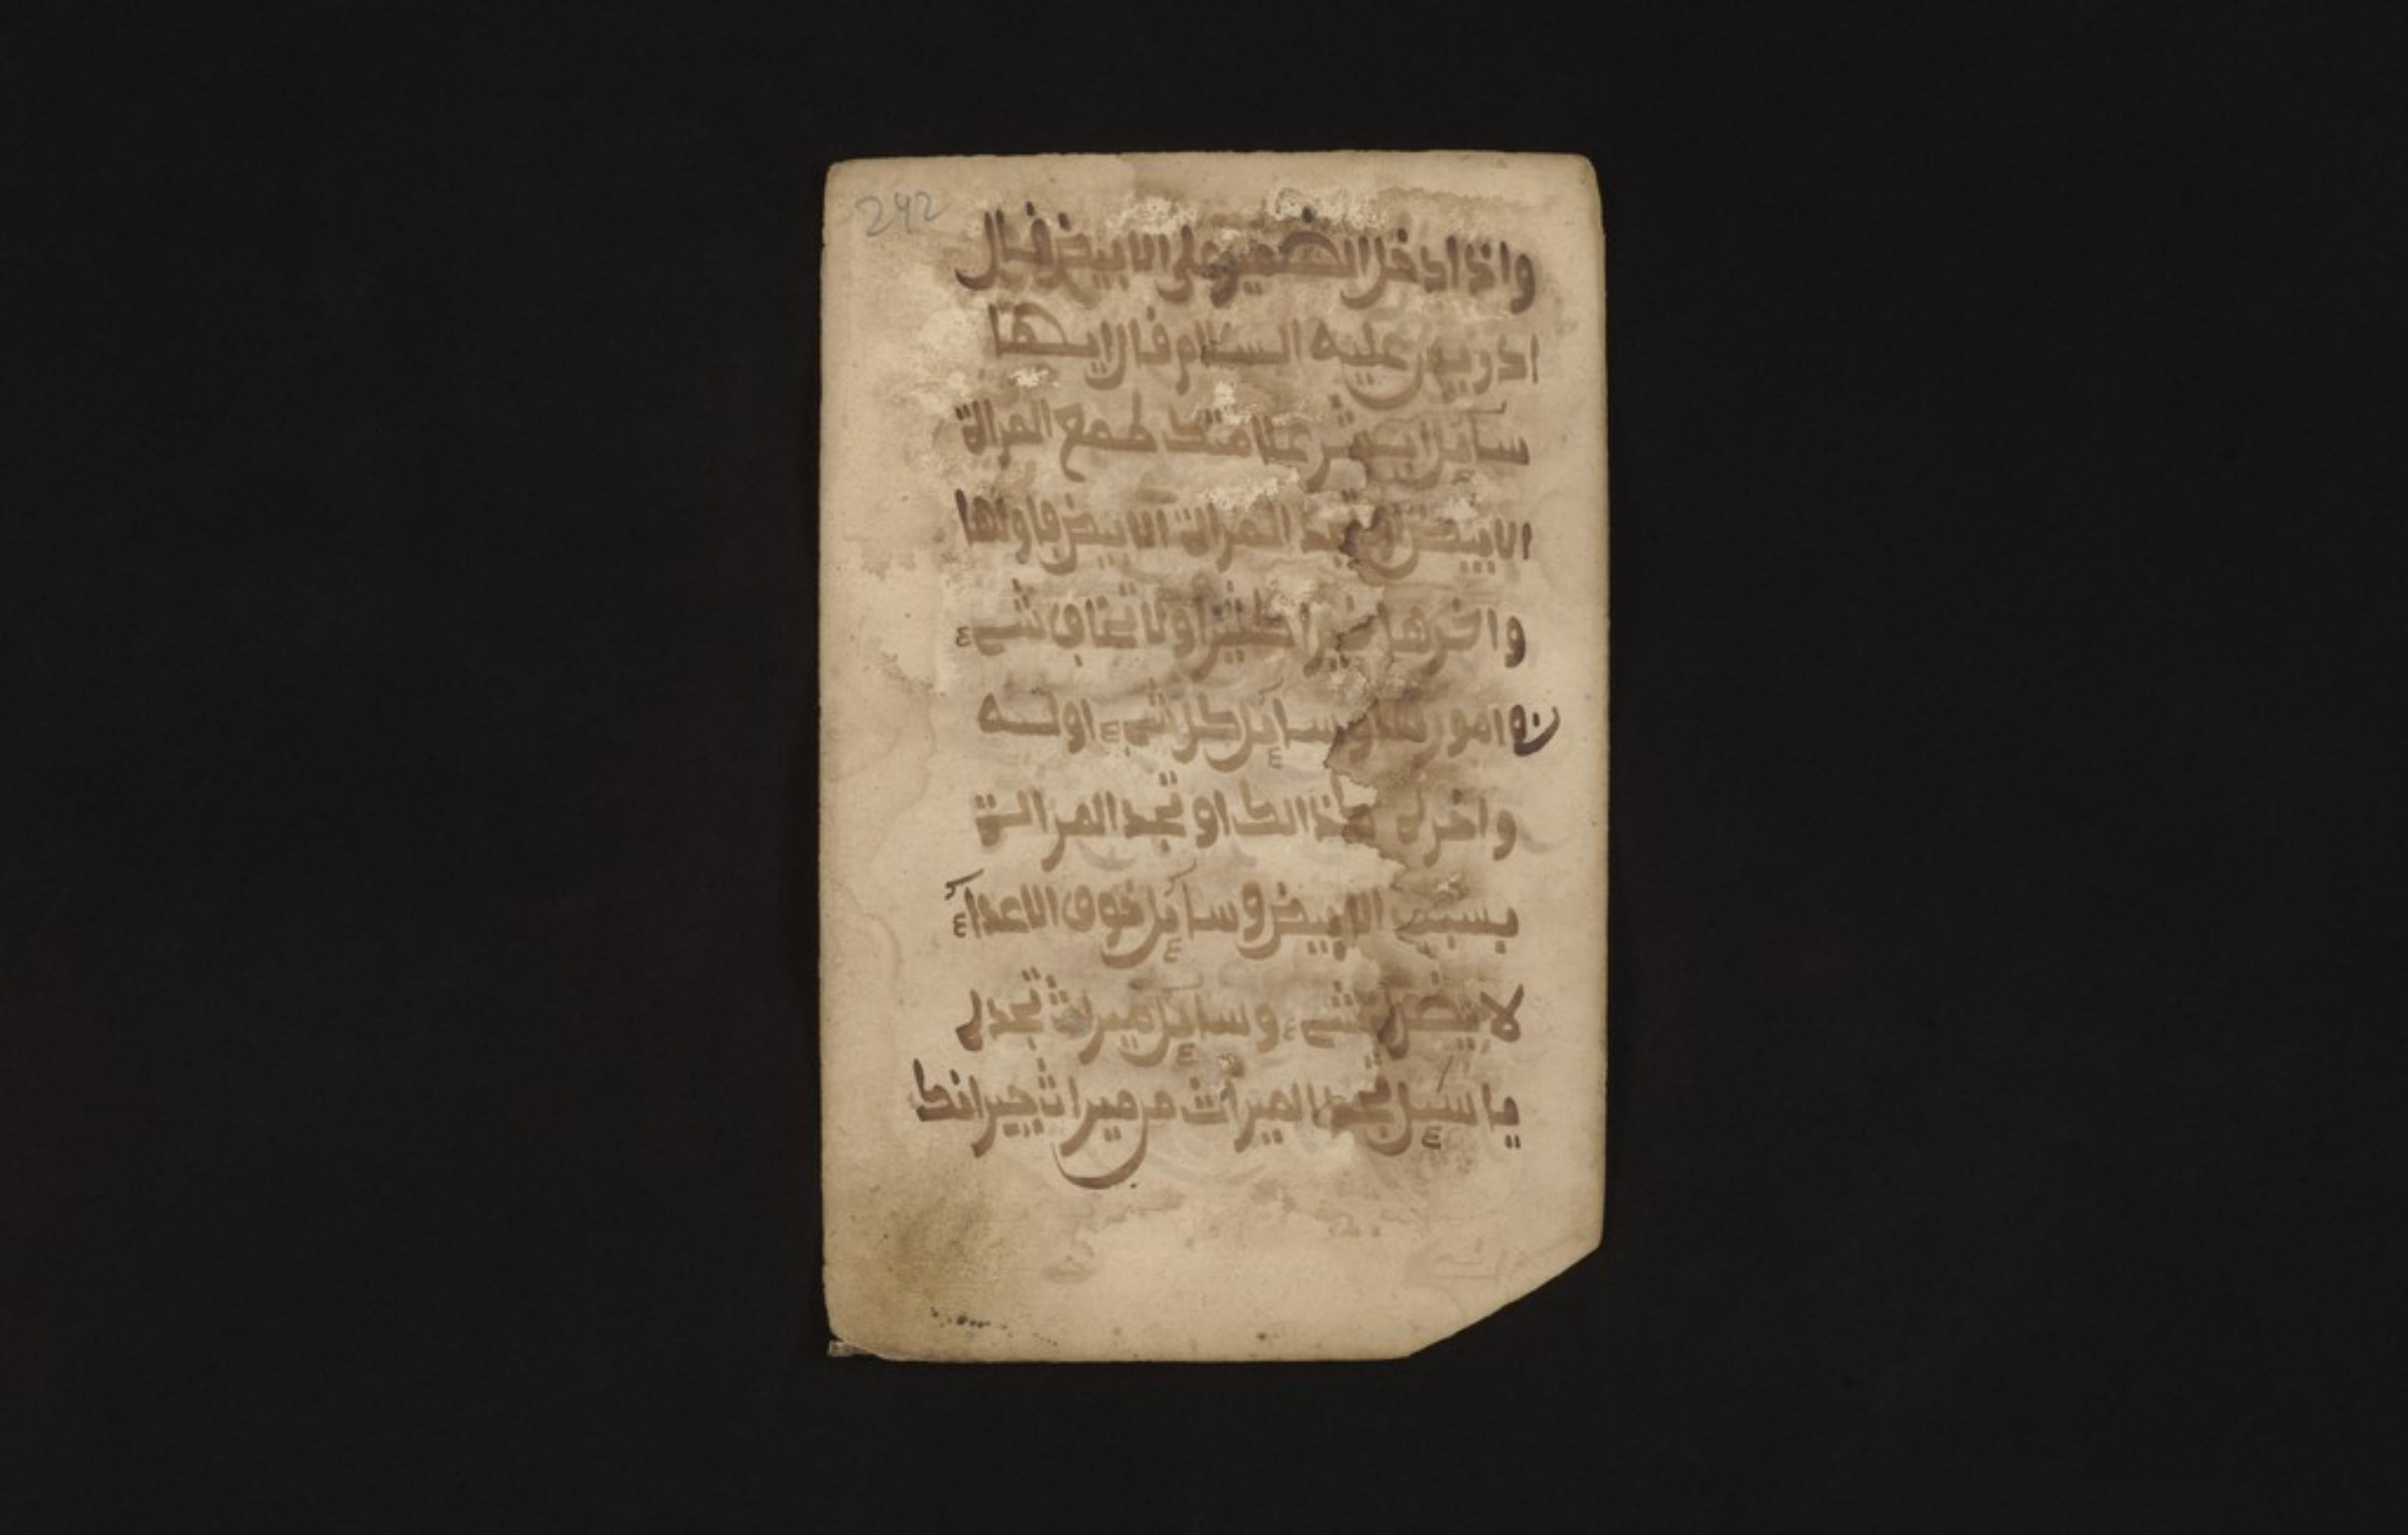 242
واذا ادخل الضمير على الابيض فال
ادريس عليه السلام فال ايها
سايل ابشر علامتك طمع المرالة
الابيض او تجد المرالة الابيض فاولها
واخرها خيرا كثيرا ولا تخاف شيء
وامورها وسايل كل شيء اوله
واخره كذالك او تجد المرالة
بسبب الابيض وسايل خوف الاعداء
لا يضرك شيء وسايل ميراث تجده
يا سيل تجد الميراث من ميراث جيرانك